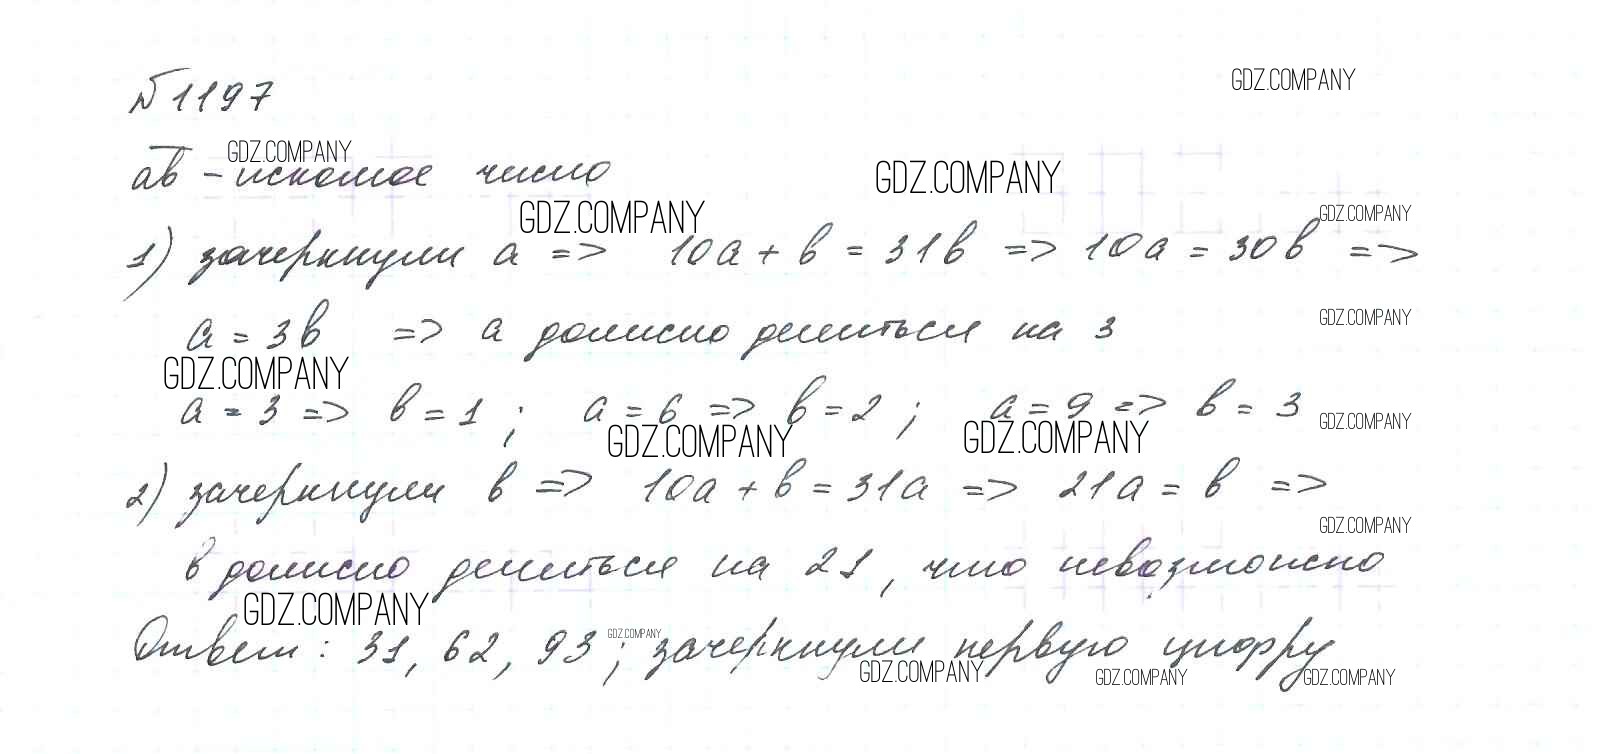 №1197
GDZ.COMPANY
ав - искомое число
GDZ.COMPANY
GDZ.COMPANY
GDZ.COMPANY
GDZ.COMPANY
1) зачеркнули а => 10а + в = 31в => 10а = 30в =>
а = 3в => а должно делиться на 3
GDZ.COMPANY
GDZ.COMPANY
а = 3 => в = 1 ; а = 6 => в = 2 ; а = 9 => в = 3
GDZ.COMPANY
GDZ.COMPANY
GDZ.COMPANY
2) зачеркнули в => 10а + в = 31а => 21а = в =>
GDZ.COMPANY
в должно делиться на 21, что невозможно
GDZ.COMPANY
Ответ: 31, 62, 93 ; зачеркнули первую цифру
GDZ.COMPANY
GDZ.COMPANY
GDZ.COMPANY
GDZ.COMPANY